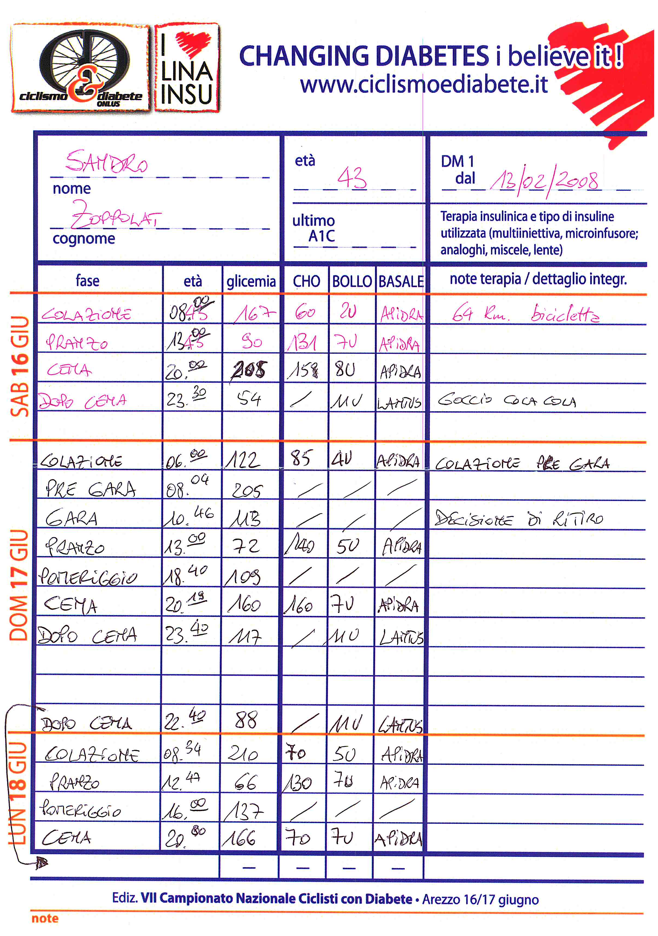 ciclismo & diabete
ONLUS
I
LINA
INSU
CHANGING DIABETES i believe it !
www.ciclismoediabete.it
SANDRO
nome
ZOPPOLAT
cognome
età
43
ultimo
A1C
DM 1
dal 13/02/2008
Terapia insulinica e tipo di insuline
utilizzata (multiiniettiva, microinfusore;
analoghi, miscele, lente)
fase età glicemia CHO BOLLO BASALE note terapia / dettaglio integr.
SAB 16 GIU
COLAZIONE 08.00 167 60 2U APIDRA 64 Km. bicicletta
PRANZO 13.00 90 131 7U APIDRA
CENA 20.00 208 158 8U APIDRA
DOPO CENA 23.30 54 / 11U LANTUS GOCCIO COCA COLA
DOM 17 GIU
COLAZIONE 06.00 122 85 4U APIDRA COLAZIONE PRE GARA
PRE GARA 08.04 205 / / /
GARA 10.46 113 / / / DECISIONE DI RITIRO
PRANZO 13.00 72 140 5U APIDRA
POMERIGGIO 18.40 109 / / /
CENA 20.19 160 160 7U APIDRA
DOPO CENA 23.40 117 / 11U LANTUS
DOPO CENA 22.40 88 / 11U LANTUS
LUN 18 GIU
COLAZIONE 08.34 210 70 5U APIDRA
PRANZO 12.47 66 130 7U APIDRA
POMERIGGIO 16.00 137 / / /
CENA 20.30 166 70 7U APIDRA
Ediz. VII Campionato Nazionale Ciclisti con Diabete • Arezzo 16/17 giugno
note